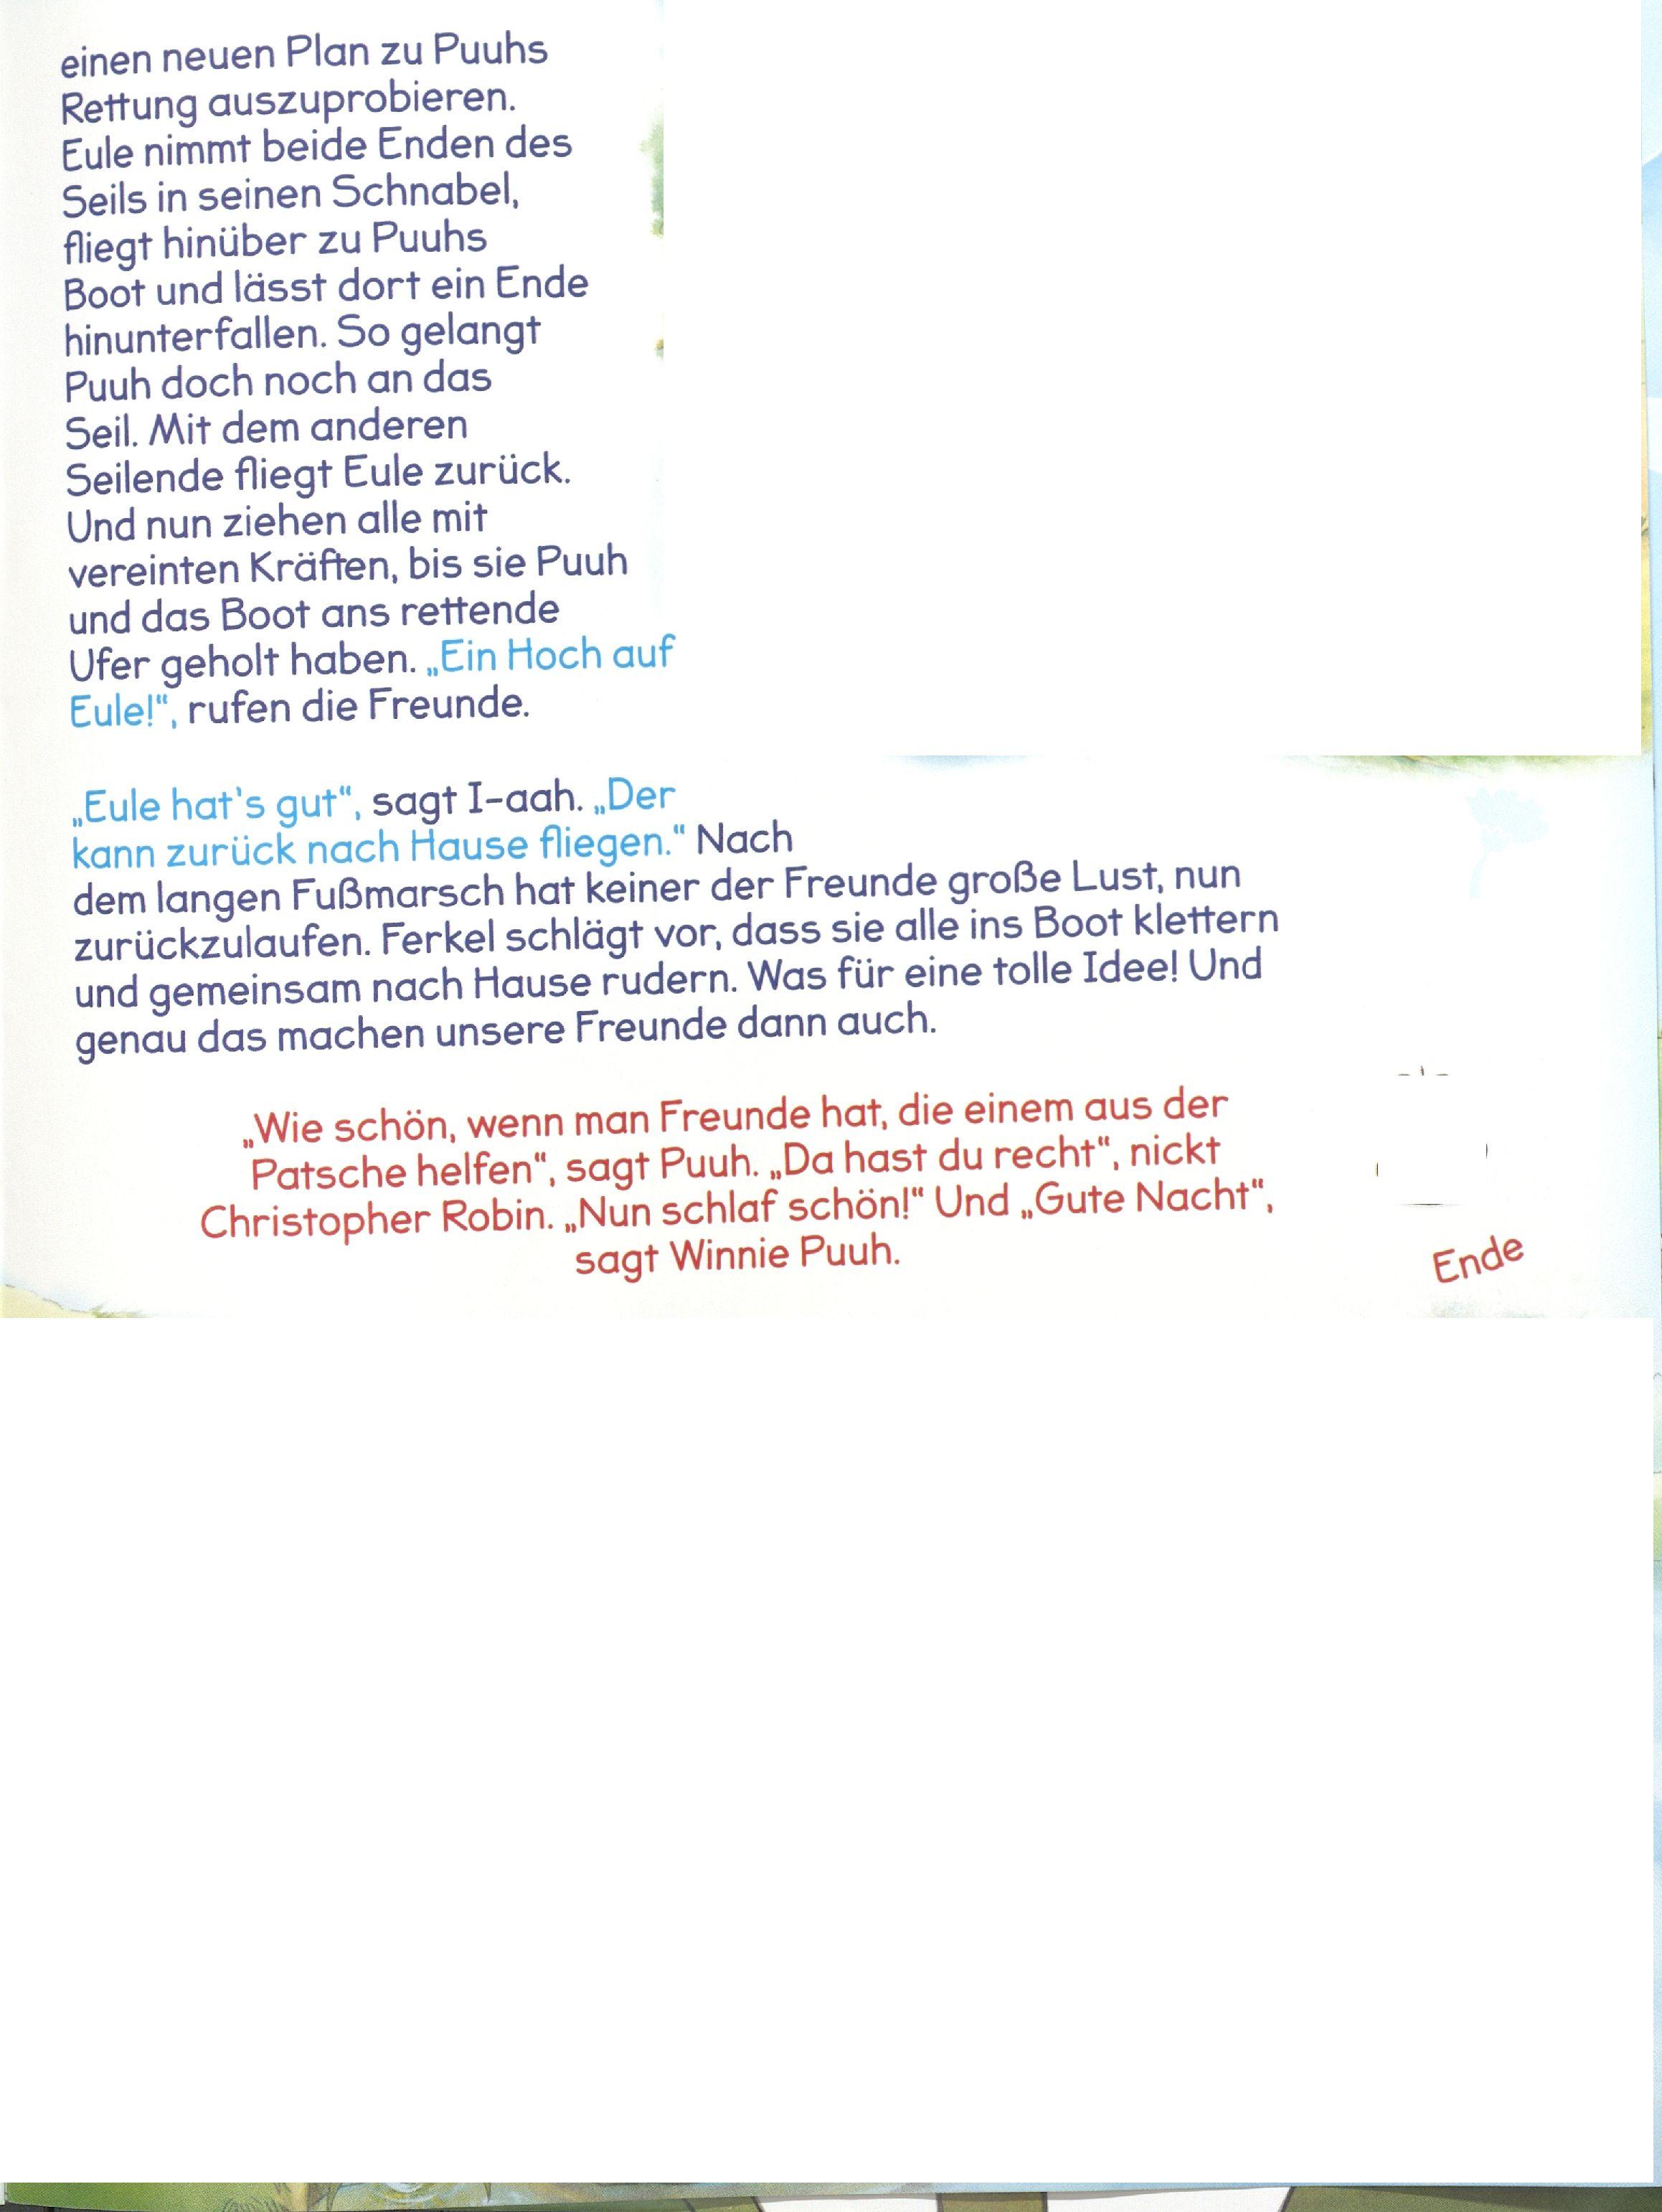 einen neuen Plan zu Puuhs
Rettung auszuprobieren.
Eule nimmt beide Enden des
Seils in seinen Schnabel,
fliegt hinüber zu Puuhs
Boot und lässt dort ein Ende
hinunterfallen. So gelangt
Puuh doch noch an das
Seil. Mit dem anderen
Seilende fliegt Eule zurück.
Und nun ziehen alle mit
vereinten Kräften, bis sie Puuh
und das Boot ans rettende
Ufer geholt haben. „Ein Hoch auf
Eule!“, rufen die Freunde.
„Eule hat's gut“, sagt I-aah. „Der
kann zurück nach Hause fliegen.“ Nach
dem langen Fußmarsch hat keiner der Freunde große Lust, nun
zurückzulaufen. Ferkel schlägt vor, dass sie alle ins Boot klettern
und gemeinsam nach Hause rudern. Was für eine tolle Idee! Und
genau das machen unsere Freunde dann auch.
„Wie schön, wenn man Freunde hat, die einem aus der
Patsche helfen“, sagt Puuh. „Da hast du recht“, nickt
Christopher Robin. „Nun schlaf schön!“ Und „Gute Nacht“,
sagt Winnie Puuh.
Ende